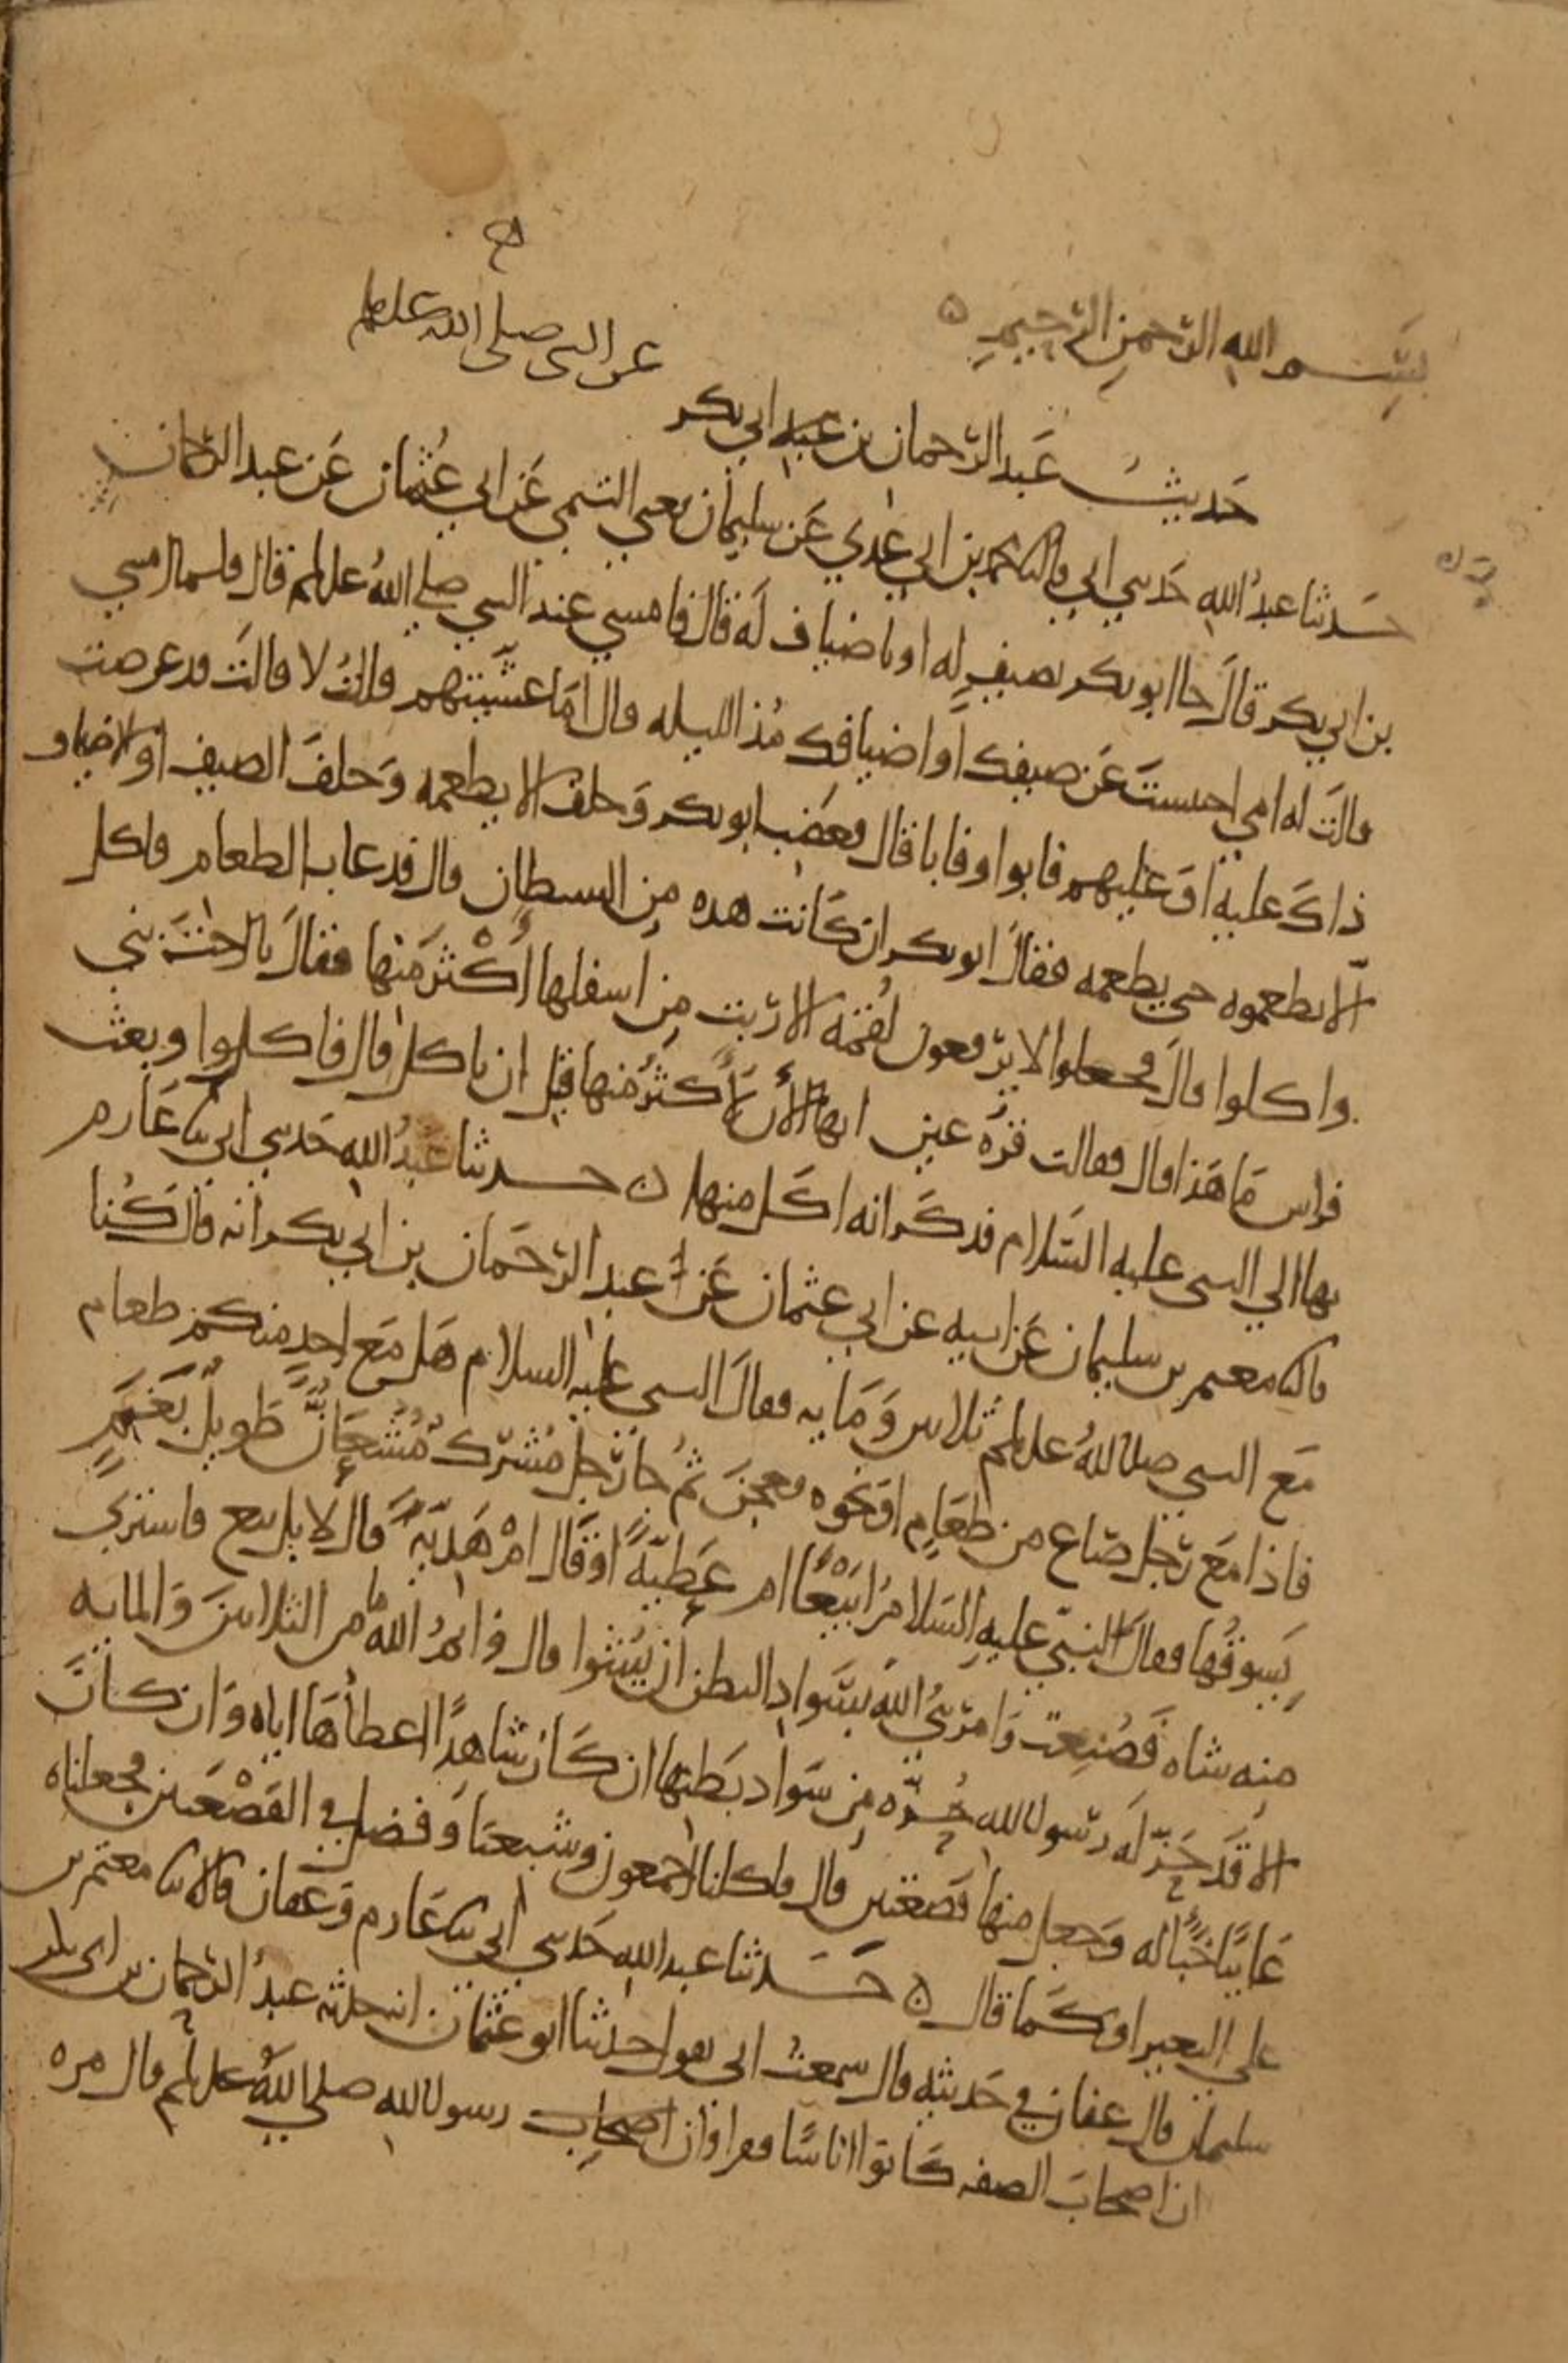 بسم الله الرحمن الرحيم
عن النبي صلى الله عليه وسلم
حديث عبد الرحمان بن أبي بكر
حدثنا عبد الله حدثني أبي قال ثنا محمد بن أبي عدي عن سليمان يعني التيمي عن أبي عثمان عن عبد الرحمان
بن أبي بكر قال جا ابو بكر بضيف له او باضياف له قال فامسي عند النبي صلي الله عليه وسلم قال فلما امسي
قالت له امي احتبست عن ضيفك او اضيافك مذ الليله قال اما عشيتهم قالت لا قالت قد عرضت
ذاك عليه او عليهم فابوا او فابا قال فغضب ابو بكر وحلف الا يطعمه وحلف الضيف او الاضياف
الا يطعموه حتي يطعمه فقال ابو بكر ان كانت هذه من الشيطان قال فدعا بالطعام فاكل
واكلوا قال فجعلوا لا يرفعون لقمة الا ربت من اسفلها اكثر منها فقال يا اخت بني
فراس ما هذا قال فقالت قرة عيني انها الآن لأكثر منها قبل ان ناكل قال فاكلوا وبعث
بها الي النبي عليه السلام فذكر انه اكل منها ن حدثنا عبد الله حدثني ابي ثنا عارم
قال ثنا معتمر بن سليمان عن ابيه عن ابي عثمان عن عبد الرحمان بن ابي بكر انه قال كنا
مع النبي صلى الله عليه وسلم ثلاثين ومايه فقال النبي عليه السلام هل مع احد منكم طعام
فاذا مع رجل صاع من طعام او نحوه فعجن ثم جا رجل مشرك مشعان طويل بغنم
يسوقها فقال النبي عليه السلام ابيعا ام عطية او قال ام هدية قال لا بل بيع فاشتري
منه شاه فصنعت وامر نبي الله بسواد البطن ان يشوا قال وايم الله ما من الثلاثين والمايه
الا قد حز له رسول الله حزه من سواد بطنها ان كان شاهدا اعطاها اياه وان كان
غايبا خبأ له وجعل منها قصعتين قال فاكلنا اجمعون وشبعنا وفضل في القصعتين فجعلناه
علي البعير او كما قال ن حدثنا عبد الله حدثني ابي ثنا عارم وعفان قالا ثنا معتمر بن
سليمان قال عفان في حديثه قال سمعت ابي يقول حدثنا ابو عثمان انه حدثه عبد الرحمان بن ابي بكر
ان اصحاب الصفه كانوا اناسا فقرا وان رسول الله صلي الله عليه وسلم قال مره